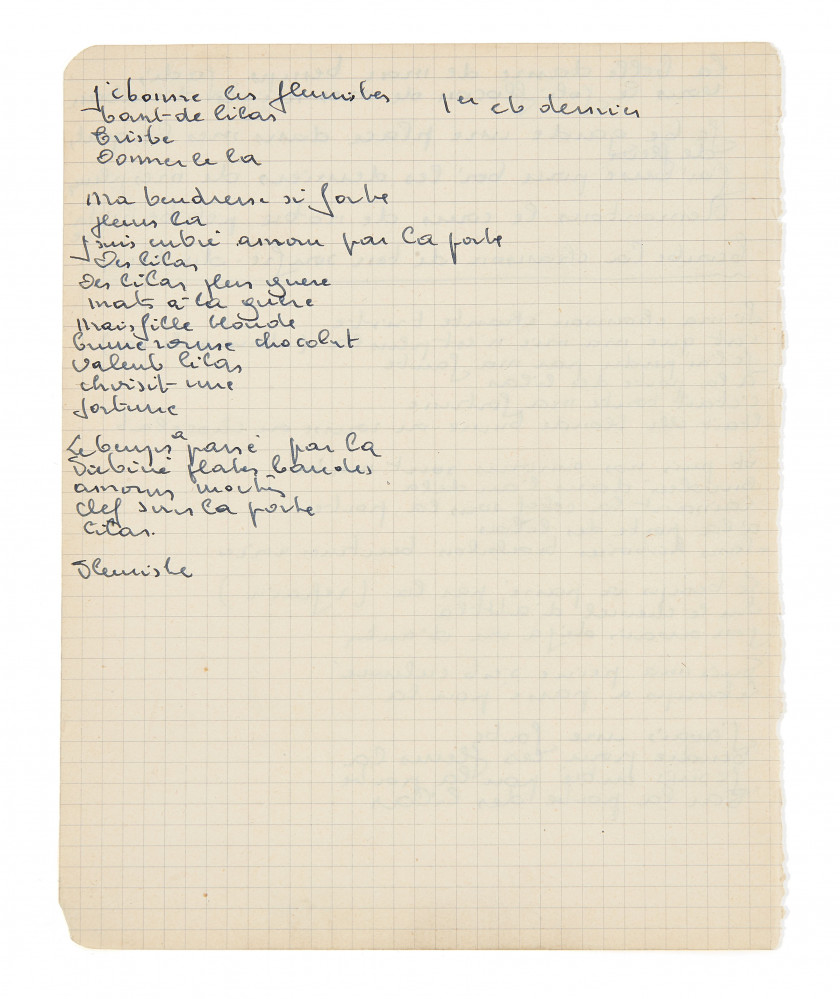 J'etonne les fleuristes 1er et dernier
tant de lilas
triste
Donner le la
Ma tendresse si forte
fleurs la
J'suis entré amour par la porte
Des lilas
Des lilas plus guere
morts à la guere
Mais fille blonde
brune rousse chocolat
valent lilas
choisit une
fortune
Le temps a passé par la
Piétiné plates bandes
amours mortes
clef sous la porte
lilas.
Fleuriste